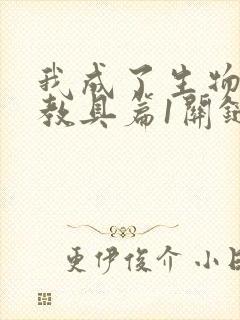 我成了生物
教具篇1關鍵
更伊俊介 小日